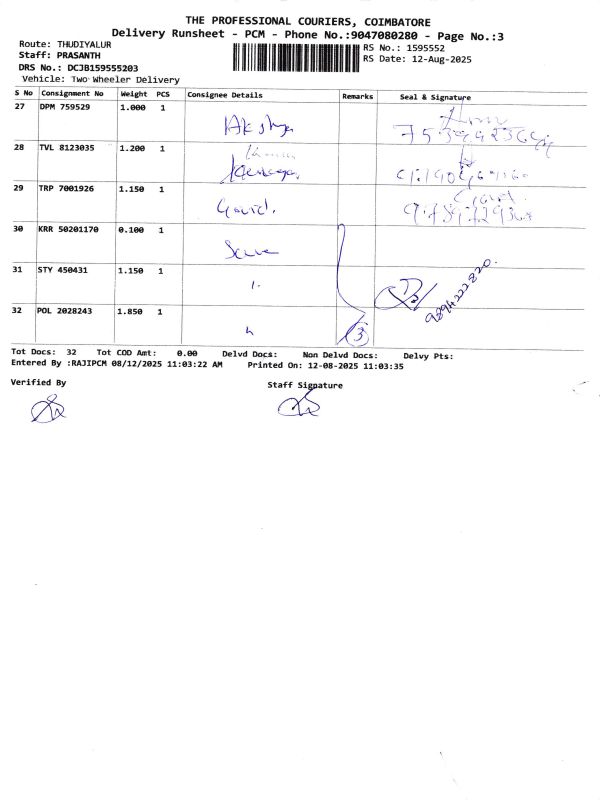 THE PROFESSIONAL COURIERS, COIMBATORE
Delivery Runsheet - PCM - Phone No.:9047080280 - Page No.:3
Route: THUDIYALUR
Staff: PRASANTH
DRS No.: DCJB159555203
Vehicle: Two Wheeler Delivery
RS No.: 1595552
RS Date: 12-Aug-2025
S No Consignment No Weight PCS Consignee Details Remarks Seal & Signature
27 DPM 759529 1.000 1 Akshya
28 TVL 8123035 1.200 1
29 TRP 7001926 1.150 1
30 KRR 50201170 0.100 1
31 STY 450431 1.150 1
9894222820.
32 POL 2028243 1.850 1 3
Tot Docs: 32 Tot COD Amt: 0.00 Delvd Docs: Non Delvd Docs: Delvy Pts:
Entered By :RAJIPCM 08/12/2025 11:03:22 AM Printed On: 12-08-2025 11:03:35
Verified By Staff Signature